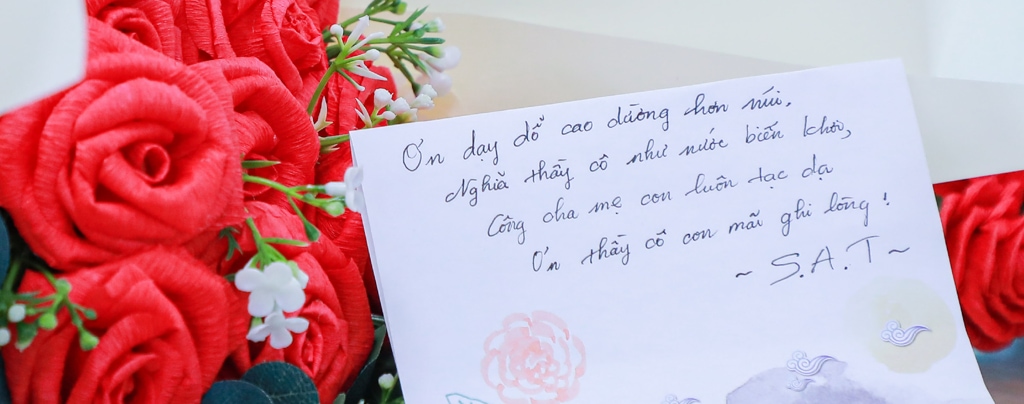 Ơn dạy dỗ cao dường hơn núi.
Nghĩa thầy cô như nước biển khơi,
Công cha mẹ con luôn tạc dạ
Ơn thầy cô con mãi ghi lòng!
~ S.A.T ~